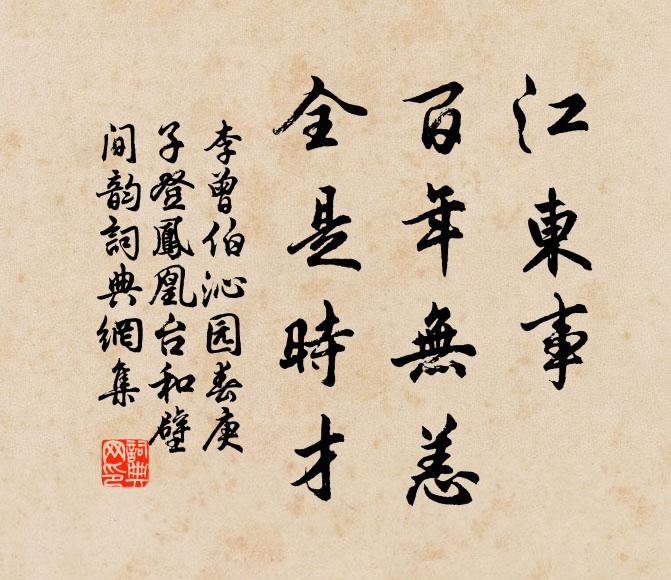 江東事
百年無恙
全是時才
李曾伯沁园春庚
子登鳳凰台和壁
间韵詞典網集
詞典
网印